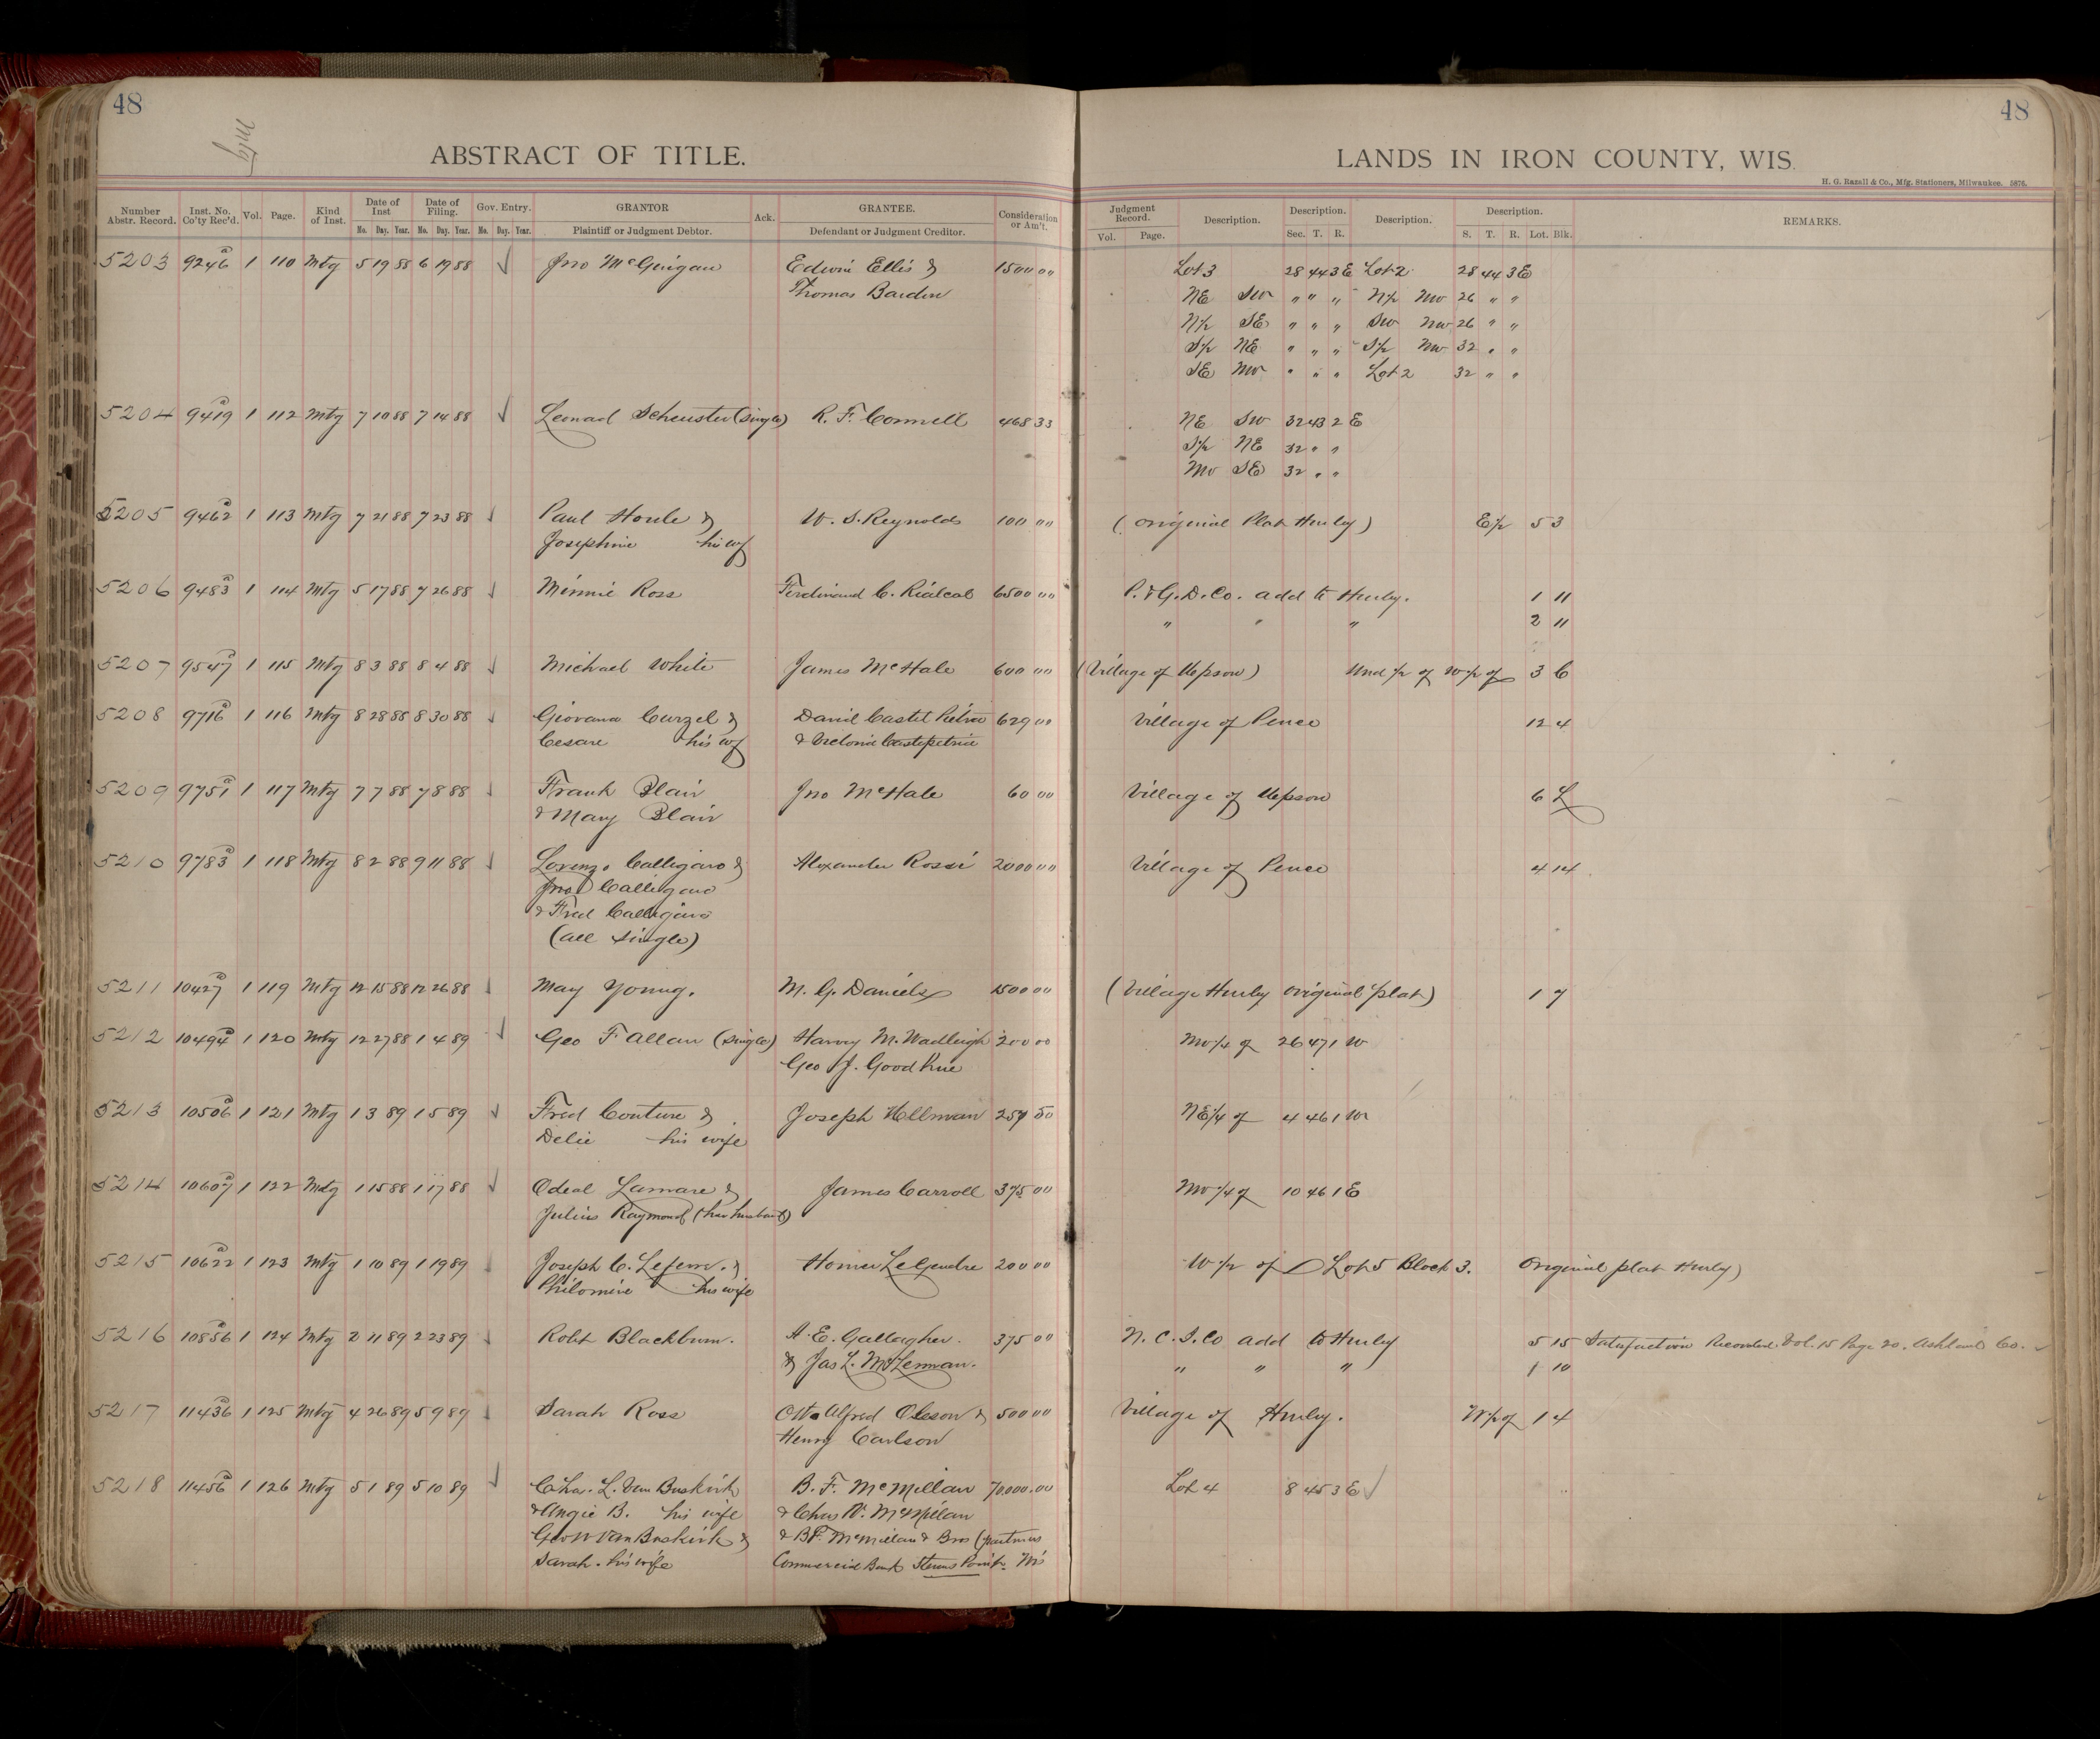 48
Mtg
ABSTRACT OF TITLE.
Number Abstr. Record. Inst. No. Co'ty Rec'd. Vol. Page. Kind of Inst. Date of Inst No. Day. Year. Date of Filing. No. Day. Year. Gov. Entry. No. Day. Year. GRANTOR Plaintiff or Judgment Debtor. Ack. GRANTEE. Defendant or Judgment Creditor. Consideration or Am't.
48
LANDS IN IRON COUNTY, WIS.
H. G. Razall & Co., Mfg. Stationers, Milwaukee. 5876.
Judgment Record. Vol. Page. Description. Description. Sec. T. R. Description. Description. S. T. R. Lot. Blk. REMARKS.
5203 9246 a 1 110 Mtg 5 19 88 6 19 88 ✓ Jno McGuigan Edwin Ellis & 1500 00 Lot 3 28 44 3 E Lot 2 28 44 3 E
Thomas Bardon NE SW " " " N½ NW 26 " "
N½ SE " " " SW NW 26 " "
S½ NE " " " S½ NW 32 " "
SE NW " " " Lot 2 32 " "
5204 9419 a 1 112 Mtg 7 10 88 7 14 88 ✓ Leonad Scheuster (single) R. F. Connell 468 33 NE SW 32 43 2 E
S½ NE 32 " "
NW SE 32 " "
5205 9462 a 1 113 Mtg 7 21 88 7 23 88 ✓ Paul Houle & W. S. Reynolds 100 00 (Original Plat Hurley) E½ 5 3
Josephine his wf
5206 9483 a 1 114 Mtg 5 17 88 7 26 88 ✓ Minnie Ross Ferdinand C. 6500 00 P. & G. D. Co. add to Hurley. 1 11
" " " 2 11
5207 9547 a 1 115 Mtg 8 3 88 8 4 88 ✓ Michael White James McHale 600 00 (Village of Upson) Und ½ of W½ of 3 C
5208 9716 a 1 116 Mtg 8 28 88 8 30 88 ✓ Giovana Curzel & David Castel Pietra 629 00 Village of Pence 12 4
Cesare his wf &
5209 9751 a 1 117 Mtg 7 7 88 7 8 88 ✓ Frank Blair Jno McHale 60 00 Village of Upson 6 L
& Mary Blair
5210 9783 a 1 118 Mtg 8 2 88 9 11 88 ✓ Lorenzo Calligaro & Alexander Rossi 2000 00 Village of Pence 4 14
Jno Calligaro
& Fred Calligaro
(all single)
5211 10427 a 1 119 Mtg 12 15 88 12 26 88 ✓ May Young. M. G. Daniels 1500 00 (Village Hurley original plat) 1 7
5212 10494 a 1 120 Mtg 12 27 88 1 4 89 ✓ Geo F Allan (single) Harvey M. Wadleigh 200 00 NW¼ of 26 47 1 W
Geo J. Goodhue
5213 10506 a 1 121 Mtg 1 3 89 1 5 89 ✓ Fred Couture & Joseph Hellman 257 50 NE¼ of 4 46 1 W
Delie his wife
5214 10607 a 1 122 Mtg 1 15 88 1 17 88 ✓ Odeal Lamare & James Carroll 375 00 NW¼ of 10 46 1 E
Julius Raymond (her husband)
5215 10622 a 1 123 Mtg 1 10 89 1 19 89 Joseph C. & Homer LeGendre 200 00 W½ of Lot 5 Block 3. Original plat Hurley)
Philomine his wife
5216 10856 a 1 124 Mtg 2 11 89 2 23 89 ✓ Robt Blackburn. A. E. Gallagher. 375 00 N. C. I. Co add to Hurley 5 15 Satisfaction Recorded Vol. 15 Page 20. Ashland Co.
& Jas L. McLennan. " " " 1 10
5217 11436 a 1 125 Mtg 4 26 89 5 9 89 ✓ Sarah Ross Otto Alfred Oleson & 500 00 Village of Hurley. W½ of 1 4
Henry Carlson
5218 11456 a 1 126 Mtg 5 1 89 5 10 89 ✓ Chas. L. Van Buskirk B. F. McMillan 70,000.00 Lot 4 8 45 3 E ✓
& Angie B. his wife & Chas V. McMillan
Geo W Van Buskirk & & B.F. McMillan & Bros (partners
Sarah. his wife Commercial Bank Stevens Point. Wis